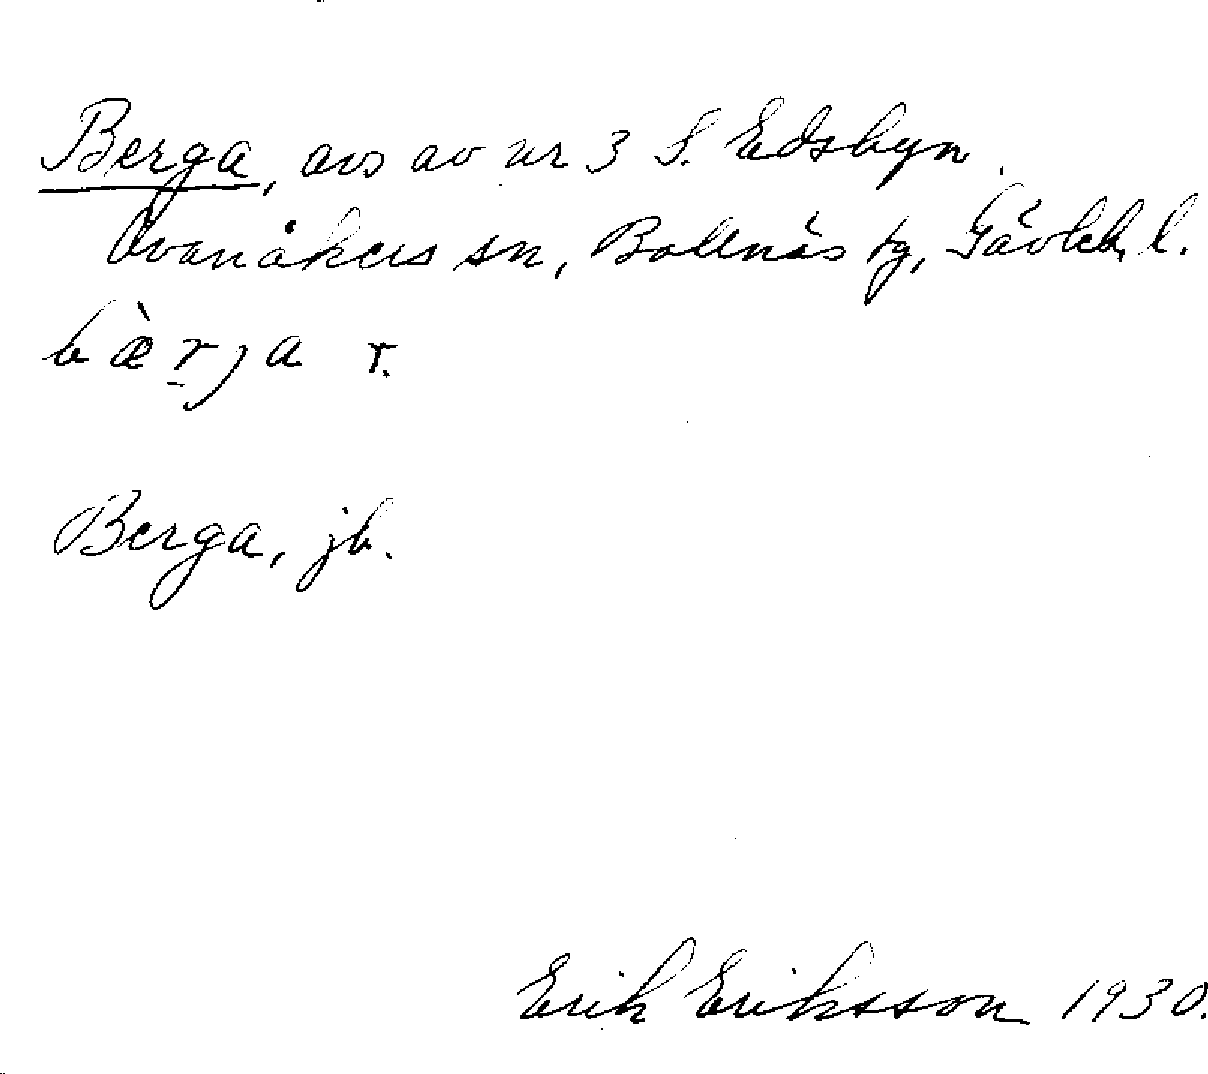 Berga, avs av nr 3 S. Edsbyn.
Ovanåkers sn, Bollnäs tg, Gävleb. l.
bæ̀r̠ja r.
Berga, jb.
Erik Eriksson 1930.